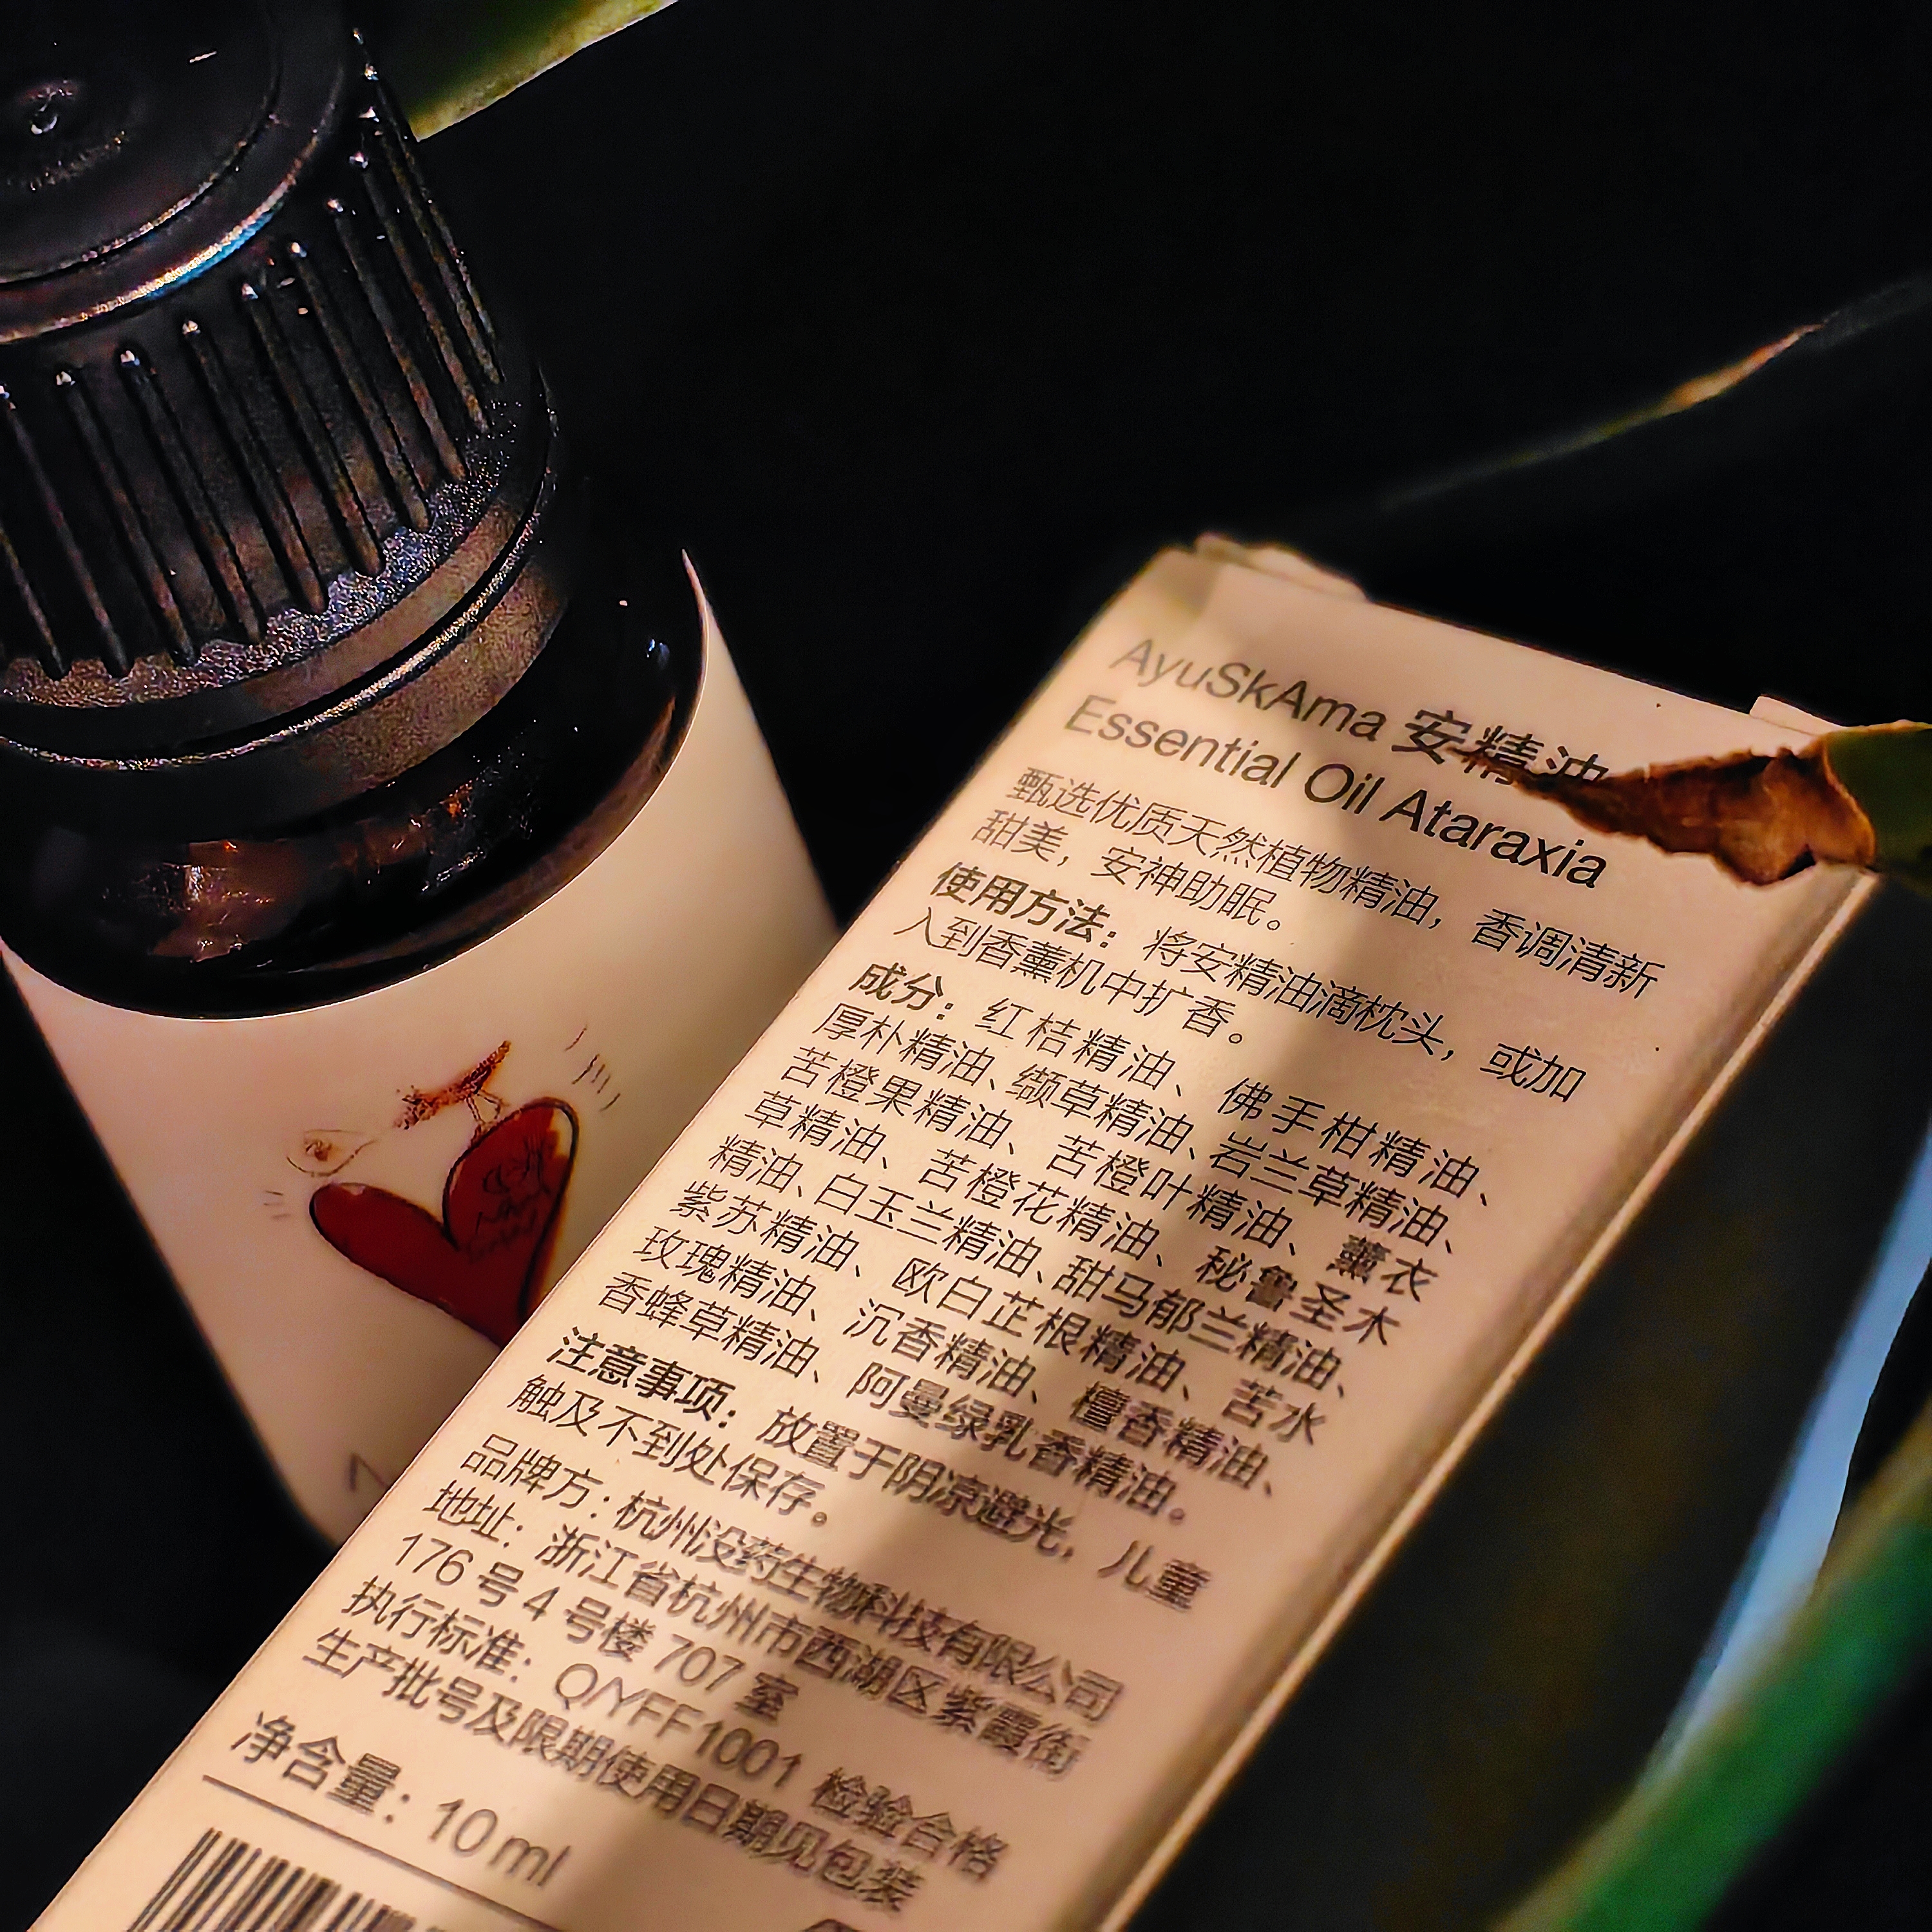 AyuSkAma 安精油
Essential Oil Ataraxia
甄选优质天然植物精油，香调清新
甜美，安神助眠。
使用方法：将安精油滴枕头，或加
入到香薰机中扩香。
成分：红桔精油、佛手柑精油、
厚朴精油、缬草精油、岩兰草精油、
苦橙果精油、苦橙叶精油、薰衣
草精油、苦橙花精油、秘鲁圣木
精油、白玉兰精油、甜马郁兰精油、
紫苏精油、欧白芷根精油、苦水
玫瑰精油、沉香精油、檀香精油、
香蜂草精油、阿曼绿乳香精油。
注意事项：放置于阴凉避光，儿童
触及不到处保存。
品牌方：杭州没药生物科技有限公司
地址：浙江省杭州市西湖区紫霞街
176 号 4 号楼 707 室
执行标准：Q/YFF1001 检验合格
生产批号及限期使用日期见包装
净含量：10 ml